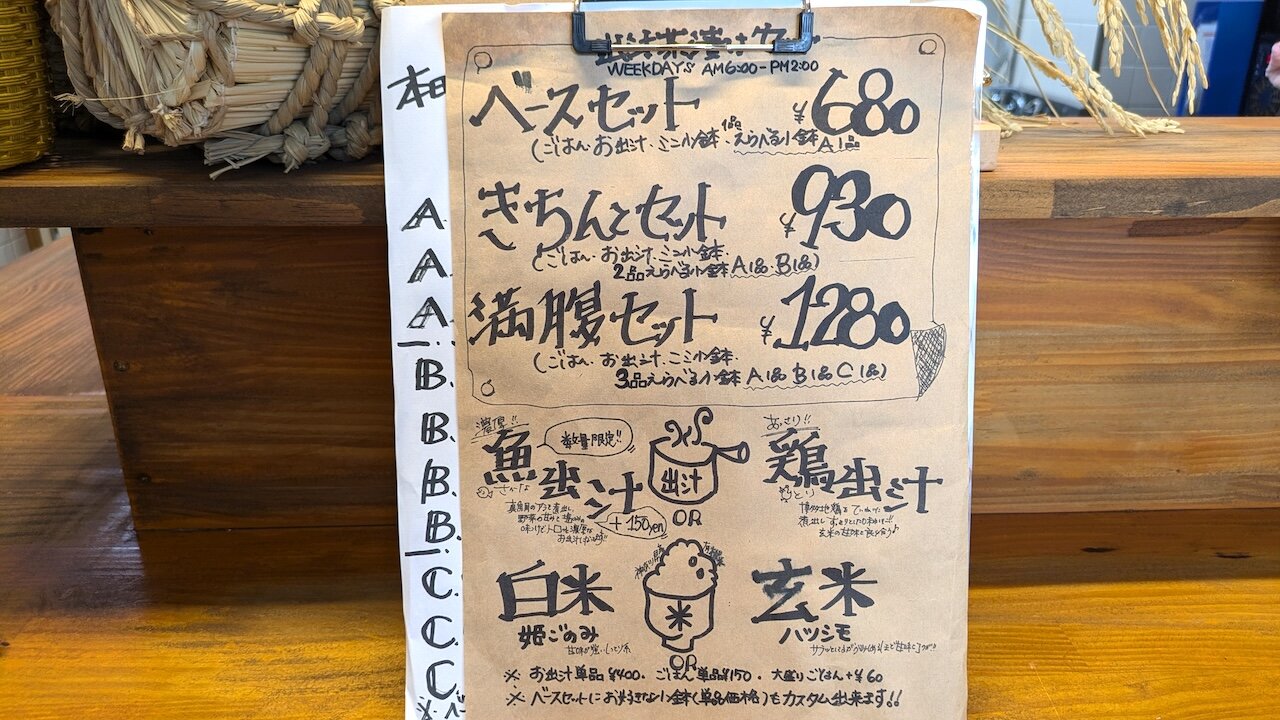 WEEKDAYS AM6:00-PM2:00
ベースセット ¥680
(ごはん、お出汁、ミニ小鉢1品、えらべる小鉢A1品
きちんとセット ¥930
(ごはん、お出汁、ミニ小鉢、
2品えらべる小鉢A1品、B1品)
満腹セット ¥1280
(ごはん、お出汁、ミニ小鉢、
3品えらべる小鉢A1品 B1品 C1品)
濃厚!!
数量限定!!
魚出汁
さかな
+150yen
出汁
OR
あっさり!!
鶏出汁
とり
白米
姫ごのみ
米
OR
玄米
ハツシモ
※ お出汁単品 ¥400. ごはん単品¥150. 大盛りごはん+¥60
※ ベースセットにお好きな小鉢(単品価格)もカスタム出来ます!!
A
A
A
B.
B.
B.
B.
C.
C.
C